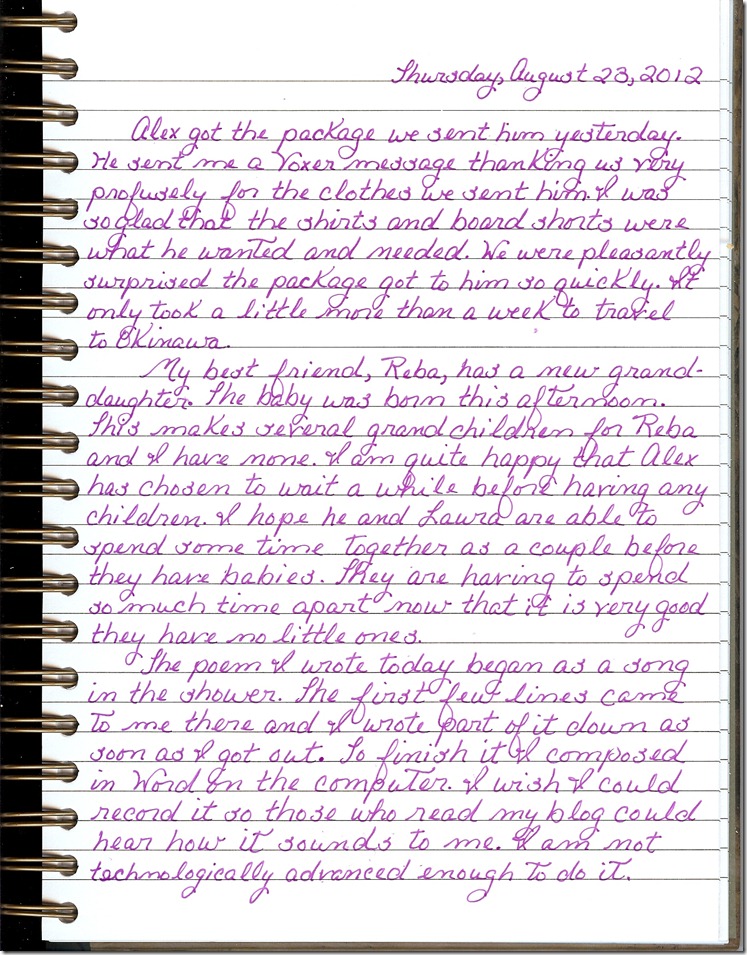 Thursday, August 23, 2012
Alex got the package we sent him yesterday.
He sent me a Voxer message thanking us very
profusely for the clothes we sent him. I was
so glad that the shirts and board shorts were
what he wanted and needed. We were pleasantly
surprised the package got to him so quickly. It
only took a little more than a week to travel
to Okinawa.
My best friend, Reba, has a new grand-
daughter. The baby was born this afternoon.
This makes several grandchildren for Reba
and I have none. I am quite happy that Alex
has chosen to wait a while before having any
children. I hope he and Laura are able to
spend some time together as a couple before
they have babies. They are having to spend
so much time apart now that it is very good
they have no little ones.
The poem I wrote today began as a song
in the shower. The first few lines came
to me there and I wrote part of it down as
soon as I got out. To finish it I composed
in Word on the computer. I wish I could
record it so those who read my blog could
hear how it sounds to me. I am not
technologically advanced enough to do it.